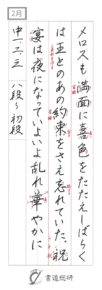 2月
メロスも満面に喜色をたたえしばらく
は王とのあの約束をさえ忘れていた。祝
宴は夜になっていよいよ乱れ華やかに
中一、二、三 八段〜初段
書道総研